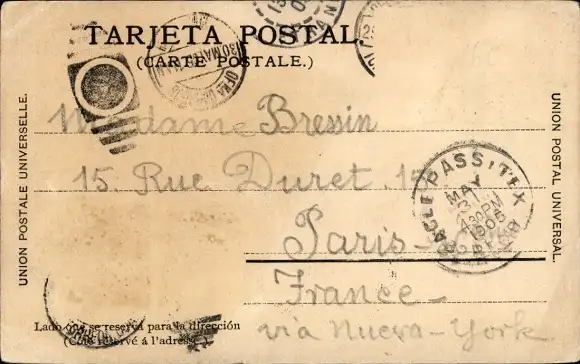 TARJETA POSTAL.
(CARTE POSTALE.)
UNION POSTALE UNIVERSELLE.
UNION POSTAL UNIVERSAL.
Madame Bressin
15. Rue Duret. 15
Paris
France
via Nueva-York
EAGLE PASS, TEX
MAY
31
30 MAY
Lado que se reserva para la dirección
(Côté réservé á l'adresse.)